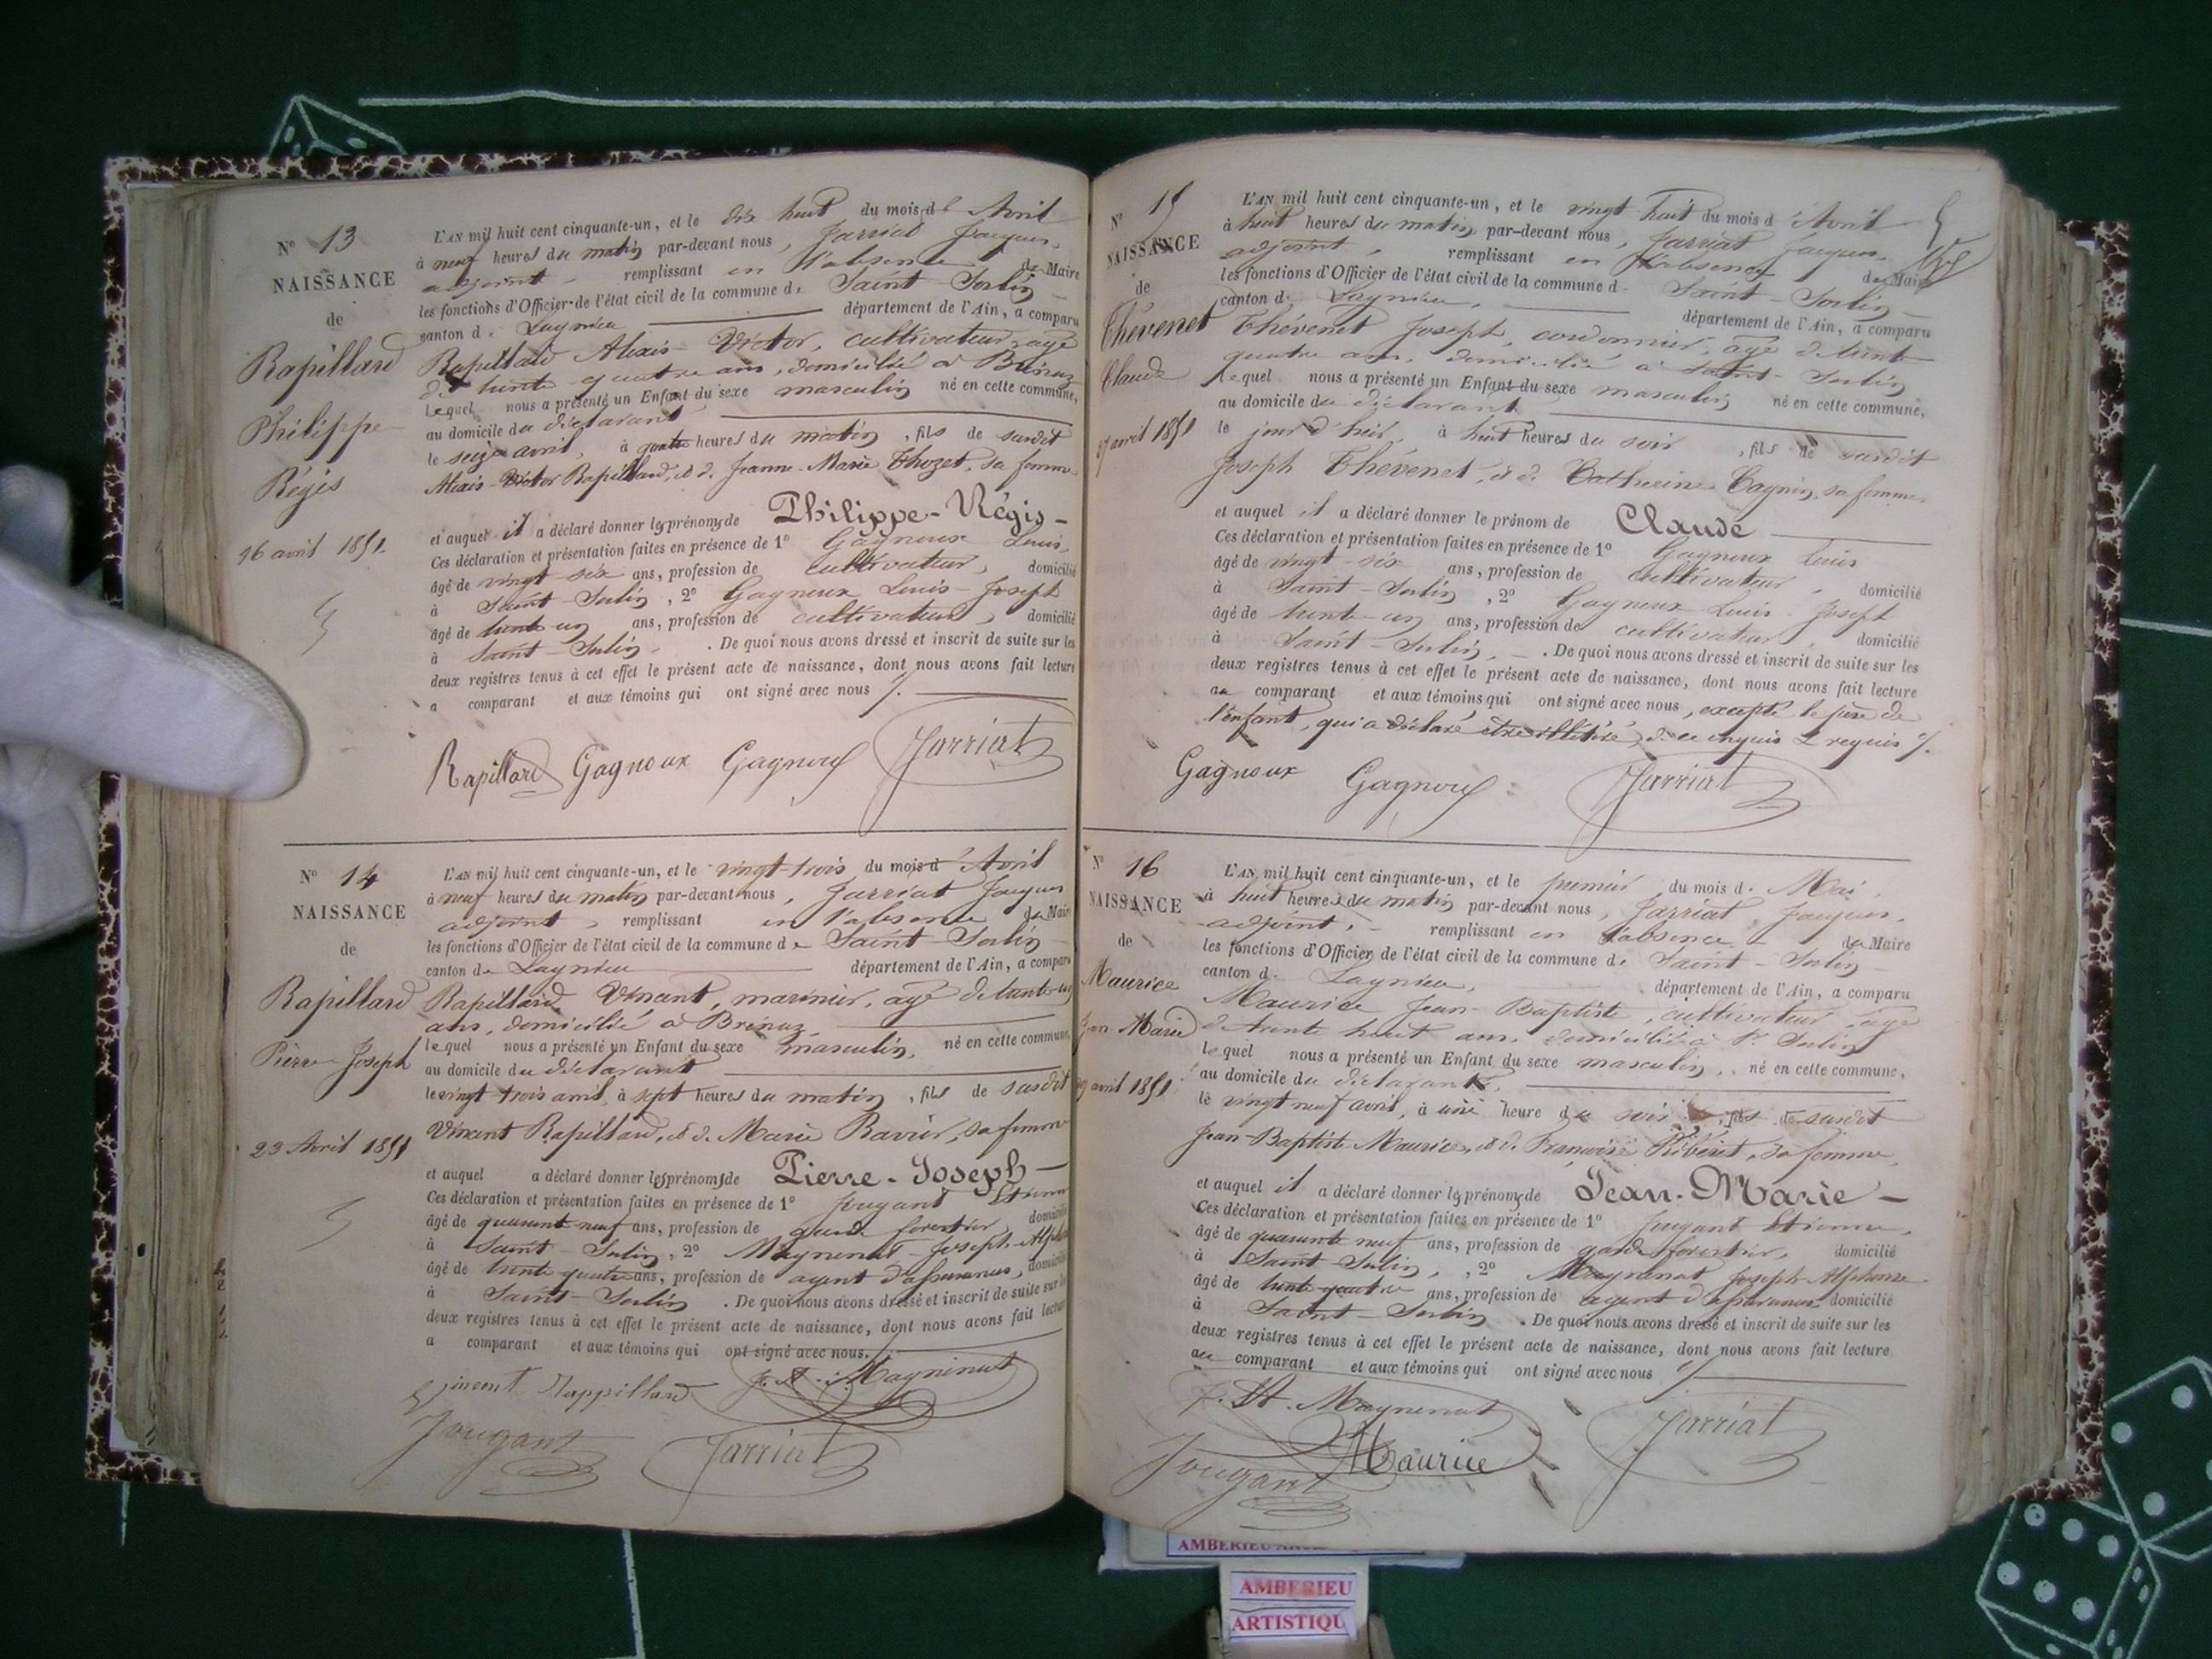 N° 13
NAISSANCE
de
Rapillard
Philippe
Régis
16 avril 1851.
L'AN mil huit cent cinquante-un, et le dix huit du mois d'Avril
à neuf heures du matin par-devant nous, Jarriat Jacques,
adjoint, remplissant en l'absence du Maire
les fonctions d'Officier de l'état civil de la commune de Saint-Sorlin
canton de Lagnieu département de l'Ain, a comparu
Rapillard Alexis-Victor, cultivateur, âgé
de trente quatre ans, domicilié à Brénaz
lequel nous a présenté un Enfant du sexe masculin né en cette commune,
au domicile du déclarant
le seize avril, à quatre heures du matin, fils de susdit
Alexis-Victor Rapillard, et de Jeanne-Marie Thozet, sa femme
et auquel il a déclaré donner les prénoms de Philippe-Régis
Ces déclaration et présentation faites en présence de 1° Gagneux Louis,
âgé de vingt-six ans, profession de cultivateur, domicilié
à Saint-Sorlin, 2° Gagneux Louis-Joseph
âgé de trente-un ans, profession de cultivateur, domicilié
à Saint-Sorlin. De quoi nous avons dressé et inscrit de suite sur les
deux registres tenus à cet effet le présent acte de naissance, dont nous avons fait lecture
a comparant et aux témoins qui ont signé avec nous
Rapillard Gagneux Gagneux Jarriat
N° 14
NAISSANCE
de
Rapillard
Pierre-Joseph
23 Avril 1851
L'AN mil huit cent cinquante-un, et le vingt-trois du mois d'Avril
à neuf heures du matin par-devant nous, Jarriat Jacques
adjoint, remplissant en l'absence du Maire
les fonctions d'Officier de l'état civil de la commune de Saint-Sorlin
canton de Lagnieu département de l'Ain, a comparu
Rapillard Vincent, marinier, âgé de trente-un
ans, domicilié à Brénaz,
lequel nous a présenté un Enfant du sexe masculin, né en cette commune,
au domicile du déclarant
le vingt-trois avril, à sept heures du matin, fils de susdit
Vincent Rapillard, et de Marie Ravier, sa femme
et auquel a déclaré donner les prénoms de Pierre-Joseph
Ces déclaration et présentation faites en présence de 1° Jougant Etienne
âgé de quarante-neuf ans, profession de garde forestier, domicilié
à Saint-Sorlin, 2° Magnenat Joseph-Alphonse
âgé de trente-quatre ans, profession de agent d'assurances, domicilié
à Saint-Sorlin. De quoi nous avons dressé et inscrit de suite sur les
deux registres tenus à cet effet le présent acte de naissance, dont nous avons fait lecture
a comparant et aux témoins qui ont signé avec nous.
Vincent Rappillard J. A. Magninat
Jougant Jarriat
N° 15
NAISSANCE
de
Thévenet
Claude
27 avril 1851
L'AN mil huit cent cinquante-un, et le vingt huit du mois d'Avril
à huit heures du matin, par-devant nous, Jarriat Jacques,
adjoint, remplissant en l'absence du Maire
les fonctions d'Officier de l'état civil de la commune de Saint-Sorlin
canton de Lagnieu, département de l'Ain, a comparu
Thévenet Joseph, cordonnier, âgé de trente
quatre ans, domicilié à Saint-Sorlin
lequel nous a présenté un Enfant du sexe masculin né en cette commune,
au domicile du déclarant
le jour d'hier, à huit heures du soir, fils de susdit
Joseph Thévenet, et de Catherine Cagnin, sa femme
et auquel il a déclaré donner le prénom de Claude
Ces déclaration et présentation faites en présence de 1° Gagneux Louis
âgé de vingt-six ans, profession de cultivateur, domicilié
à Saint-Sorlin, 2° Gagneux Louis-Joseph
âgé de trente-un ans, profession de cultivateur, domicilié
à Saint-Sorlin. De quoi nous avons dressé et inscrit de suite sur les
deux registres tenus à cet effet le présent acte de naissance, dont nous avons fait lecture
au comparant et aux témoins qui ont signé avec nous, excepté le père de
l'enfant, qui a déclaré être illétéré, de ce enquis & requis
Gagneux Gagneux Jarriat
N° 16
NAISSANCE
de
Maurice
Jean-Marie
29 avril 1851
L'AN mil huit cent cinquante-un, et le premier du mois de Mai,
à huit heures du matin par-devant nous, Jarriat Jacques,
adjoint, remplissant en l'absence du Maire
les fonctions d'Officier de l'état civil de la commune de Saint-Sorlin
canton de Lagnieu, département de l'Ain, a comparu
Maurice Jean-Baptiste, cultivateur, âgé
de trente huit ans, domicilié à St Sorlin
lequel nous a présenté un Enfant du sexe masculin, né en cette commune,
au domicile du déclarant,
le vingt neuf avril, à une heure du soir, fils de susdit
Jean-Baptiste Maurice, et de Françoise Ribéret, sa femme,
et auquel il a déclaré donner les prénoms de Jean-Marie
Ces déclaration et présentation faites en présence de 1° Jougant Etienne,
âgé de quarante neuf ans, profession de garde forestier, domicilié
à Saint-Sorlin, 2° Magnenat Joseph-Alphonse
âgé de trente-quatre ans, profession de agent d'assurances domicilié
à Saint-Sorlin. De quoi nous avons dressé et inscrit de suite sur les
deux registres tenus à cet effet le présent acte de naissance, dont nous avons fait lecture
au comparant et aux témoins qui ont signé avec nous
J. A. Magnenat Jarriat
Maurice
Jougant
AMBERIEU
AMBERIEU
ARTISTIQU